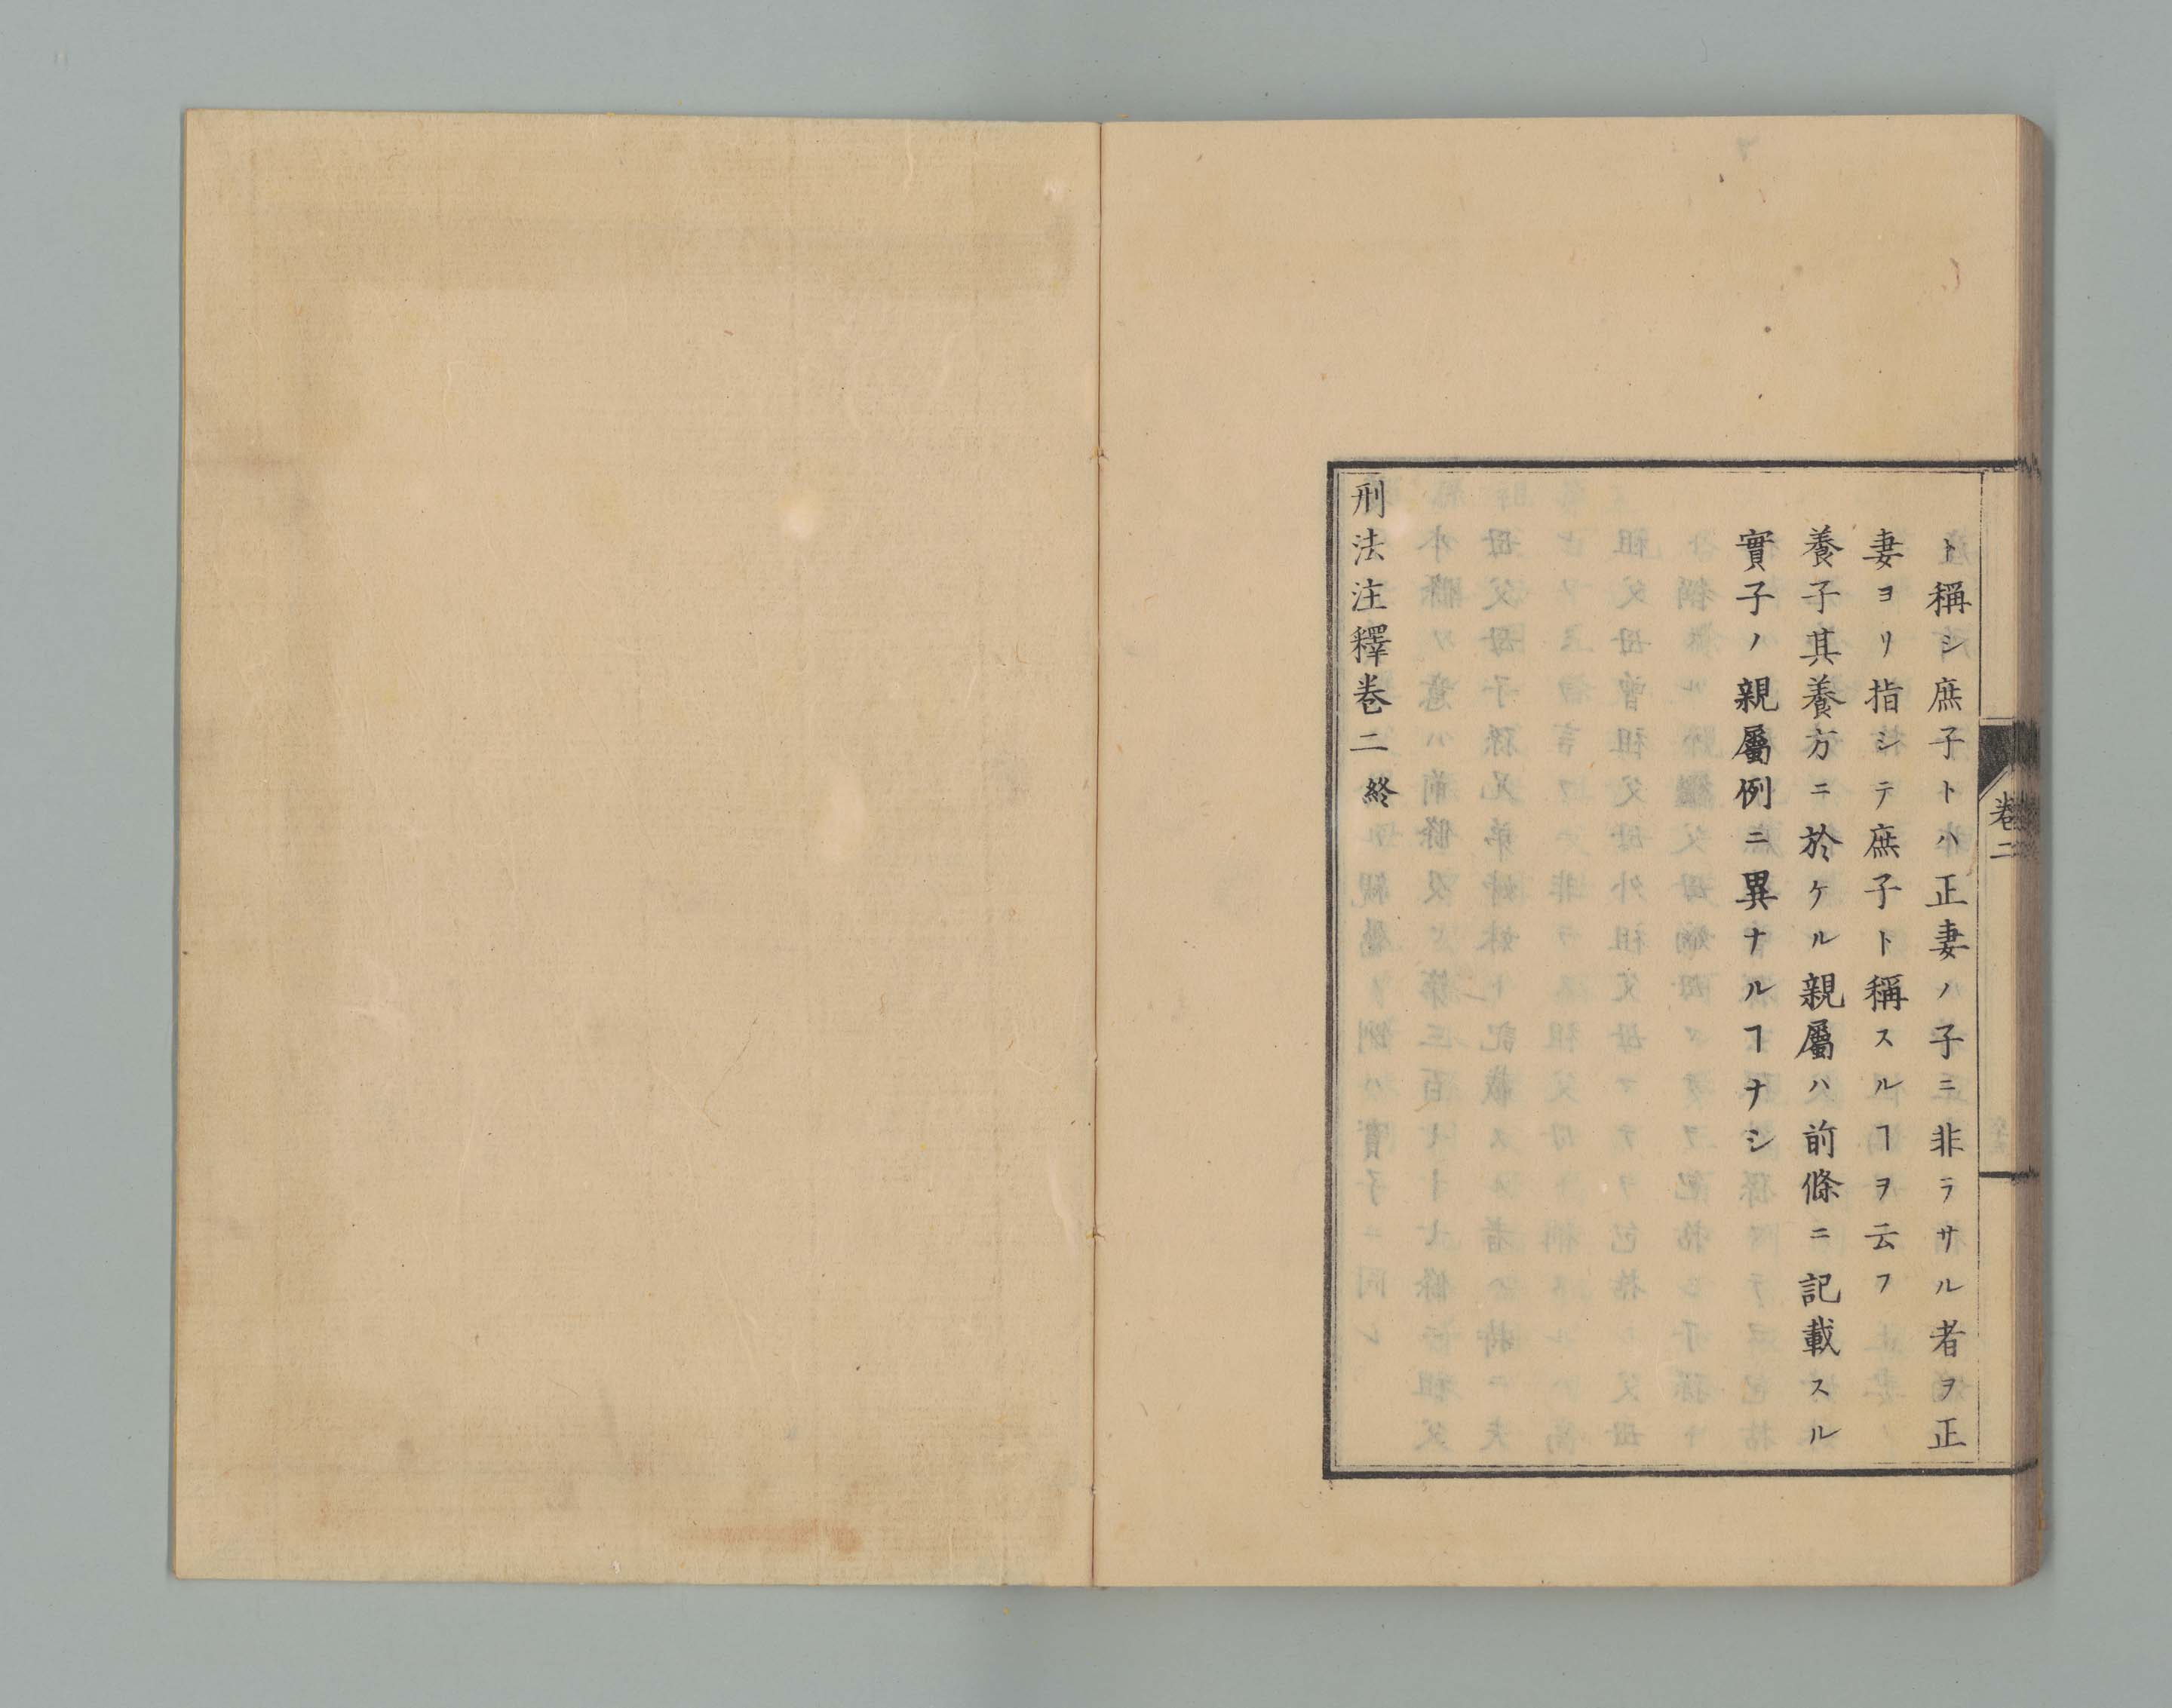 ト稱シ庶子トハ正妻ノ子ニ非ラサル者ヲ正
妻ヨリ指シテ庶子ト稱スルヿヲ云フ
養子其養方ニ於ケル親屬ハ前條ニ記載スル
實子ノ親屬例ニ異ナルヿナシ
刑法注釋卷二 終
卷二